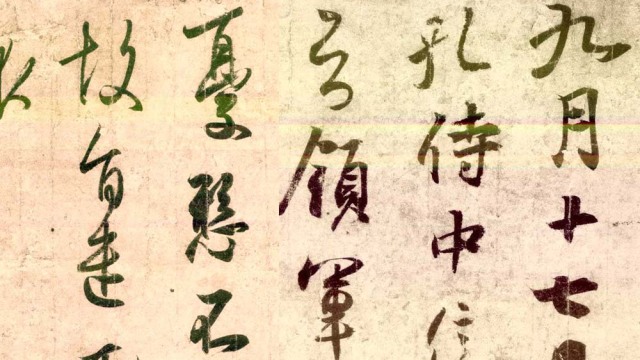 九月十七日
孔侍中信
領軍
憂懸不
故旨遣